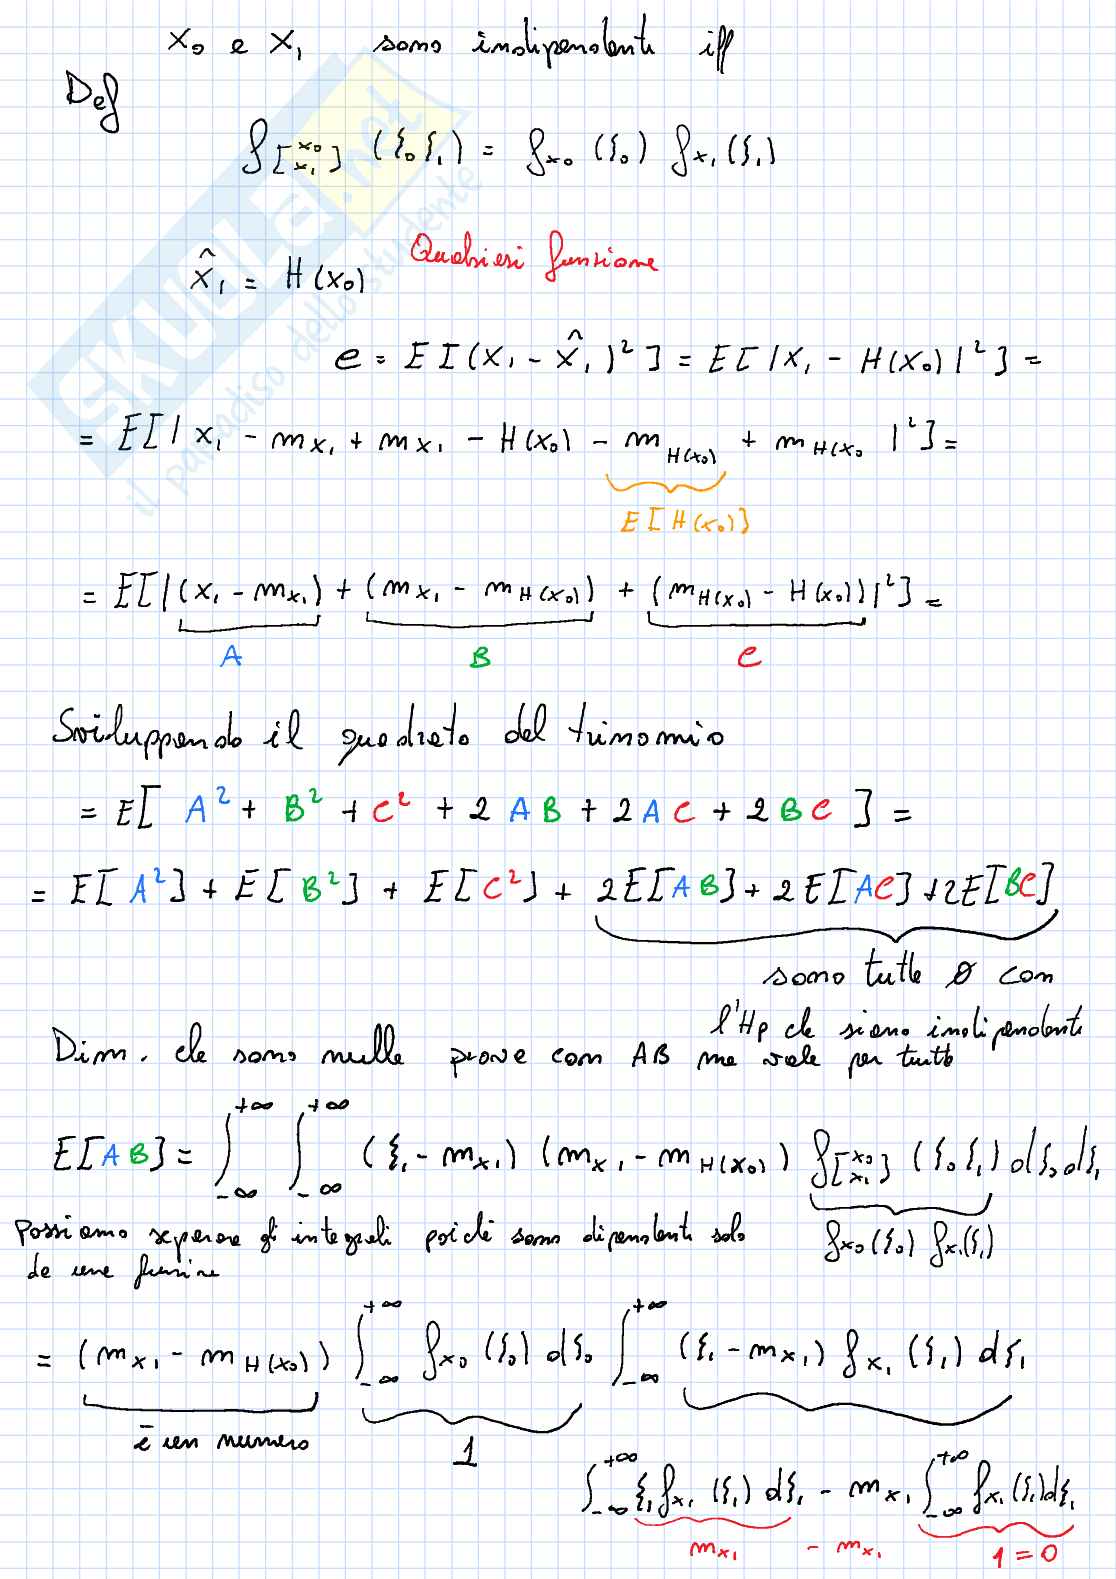 x₀ e x₁ sono indipendenti iff
Def
f[x₀ x₁] (ξ₀ ξ₁) = fx₀ (ξ₀) fx₁ (ξ₁)
x̂₁ = H(x₀) Qualsiesi funzione
e = E[(x₁ - x̂₁)²] = E[|x₁ - H(x₀)|²] =
= E[|x₁ - mx₁ + mx₁ - H(x₀) - mH(x₀) + mH(x₀ |²] =
E[H(x₀)]
= E[|(x₁ - mx₁) + (mx₁ - mH(x₀)) + (mH(x₀) - H(x₀))|²] =
A B C
Sviluppando il quadrato del trinomio
= E[ A² + B² + C² + 2 AB + 2 AC + 2 BC ] =
= E[A²] + E[B²] + E[C²] + 2E[AB] + 2E[AC] + 2E[BC]
sono tutte 0 con
l'Hp che siano indipendenti
Dim. che sono nulle prove con AB ma vale per tutto
E[AB] = ∫₋∞⁺∞ ∫₋∞⁺∞ (ξ₁ - mx₁) (mx₁ - mH(x₀)) f[x₀ x₁] (ξ₀ ξ₁) dξ₀ dξ₁
fx₀(ξ₀) fx₁(ξ₁)
Possiamo separare gli integrali poiché sono dipendenti solo
da una funzine
= (mx₁ - mH(x₀)) ∫₋∞⁺∞ fx₀ (ξ₀) dξ₀ ∫₋∞⁺∞ (ξ₁ - mx₁) fx₁ (ξ₁) dξ₁
è un numero 1
∫₋∞⁺∞ ξ₁ fx₁ (ξ₁) dξ₁ - mx₁ ∫₋∞⁺∞ fx₁ (ξ₁) dξ₁
mx₁ - mx₁ 1 = 0
SKUOLA.net
il paradiso dello studente